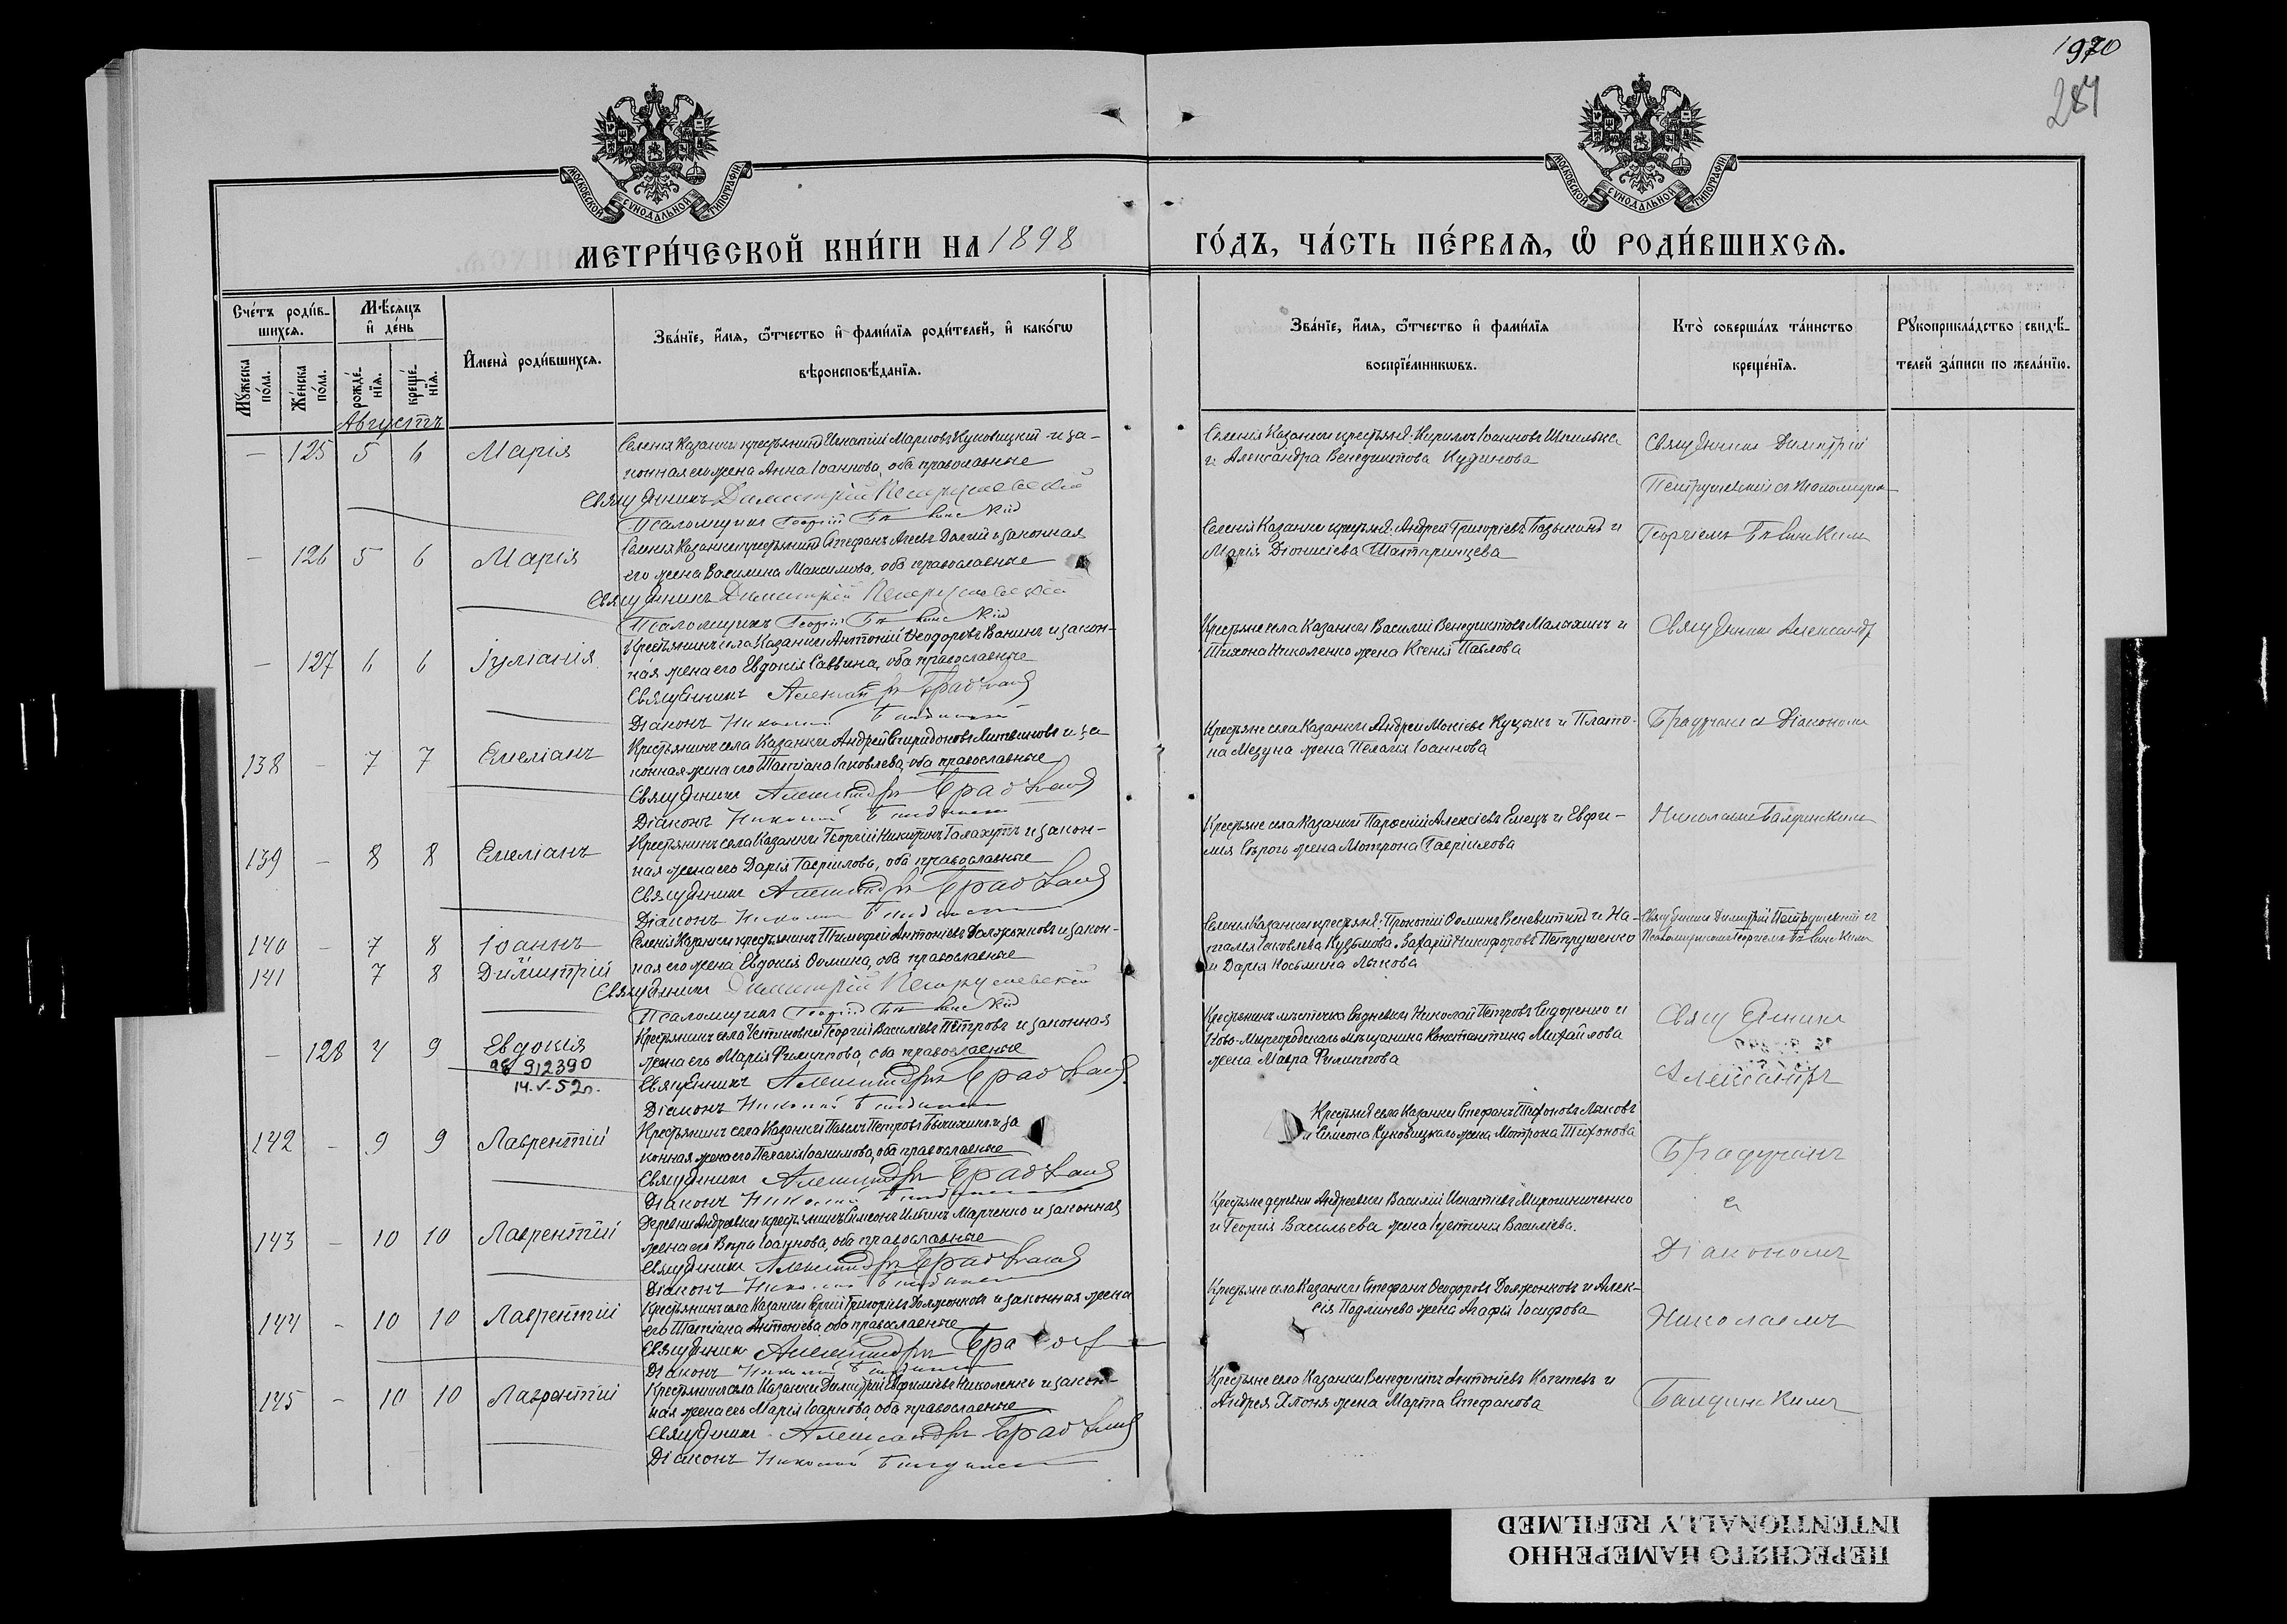 1970
284
МОСКОВСКОЙ СѴНОДАЛЬНОЙ ТИПОГРАФІИ
МОСКОВСКОЙ СѴНОДАЛЬНОЙ ТИПОГРАФІИ
МЕТРИ́ЧЕСКОЙ КНИ́ГИ НА 1898
ГО́ДЪ, ЧА́СТЬ ПЕ́РВАЯ, Ѡ РОДИ́ВШИХСЯ.
Сче́тъ роди́вшихся.
Мꙋ́жеска по́ла.
Же́нска по́ла.
Мѣ́сяцъ и҆ де́нь
рожде́нїя.
креще́нїя.
И҆мена̀ роди́вшихся.
Зва́нїе, и҆́мя, ѻ҆́тчество и҆ фами́лїя роди́телей, и҆ како́гѡ
вѣроисповѣ́данїя.
Зва́нїе, и҆́мя, ѻ҆́тчество и҆ фами́лїя
воспрїе́мникѡвъ.
Кто̀ соверша́лъ та́инство
креще́нїя.
Рꙋкоприкла́дство свидѣ́-
телей за́писи по жела́нїю.
Августъ
— 125 5 6 Марія
Селенія Казанки крестьянинъ Игнатій Марковъ Куковицкій и за-
конная его жена Анна Іоаннова, оба православные
Священникъ Димитрій Петрушевскій
Псаломщикъ Георгій
Селенія Казанки крестьяне: Кирилъ Іоанновъ Шпилька
и Александра Венедиктова Кудинова
Священникъ Димитрій
Петрушевскій съ Псаломщик
— 126 5 6 Марія
Селенія Казанки крестьянинъ Стефанъ Агеевъ Долгій и законная
его жена Василина Максимова, оба православные
Священникъ Димитрій Петрушевскій
Псаломщикъ Георгій
Селенія Казанки крестьяне: Андрей Григоріевъ Базыканъ и
Марія Діонисіева Шатаринцева
Георгіемъ
— 127 6 6 Іуліанія
Крестьянинъ села Казанки Антоній Ѳеодоровъ Ванинъ и закон-
ная жена его Евдокія Саввина, оба православные
Священникъ Александръ
Діаконъ Николай
Крестьяне села Казанки Василій Венедиктовъ Малахинъ и
Тихона Николенко жена Ксенія Павлова
Священникъ Александръ
138 — 7 7 Емеліанъ
Крестьянинъ села Казанки Андрей Спиридоновъ Литвиновъ и за-
конная жена его Татіана Іаковлева, оба православные
Священникъ Александръ
Діаконъ Николай
Крестьяне села Казанки Андрей Мокіевъ Куцыкъ и Плато-
на Мазуна жена Пелагія Іоаннова
съ Діакономъ
139 — 8 8 Емеліанъ
Крестьянинъ села Казанки Георгій Никитинъ Галахутъ и закон-
ная жена его Дарія Гавріилова, оба православные
Священникъ Александръ
Діаконъ Николай
Крестьяне села Казанки Парѳеній Алексіевъ Емецъ и Евфи-
мія жена Мотрона Гавріилова
Николаемъ
140 — 7 8 Іоаннъ
141 7 8 Димитрій
Селенія Казанки крестьянинъ Тимофей Антоніевъ Должонковъ и закон-
ная его жена Евдокія Ѳомина, оба православные
Священникъ Димитрій Петрушевскій
Псаломщикъ Георгій
Селенія Казанки крестьяне: Прокопій Ѳоминъ Веневитинъ и На-
талія Іаковлева Кузьмова. Захарій Никифоровъ Петрушенко
и Дарія Косьмина Лыкова
Священникъ Димитрій Петрушевскій съ
Псаломщикомъ Георгіемъ
— 128 4 9 Евдокія
912390
14-V-52г.
Крестьянинъ села Устиновки Георгій Василіевъ Петровъ и законная
жена его Марія Филиппова, оба православные
Священникъ Александръ
Діаконъ Николай
Крестьянинъ мѣстечка Николай Петровъ Сидоренко и
Ново-Миргородскаго мѣщанина Константина Михайлова
жена Мавра Филиппова
Священникъ
Александръ
142 — 9 9 Лаврентій
Крестьянинъ села Казанки Павелъ Петровъ и за
конная жена его Пелагія Іоакимова, оба православные
Священникъ Александръ
Діаконъ Николай
Крестьяне села Казанки Стефанъ Тихоновъ Лыковъ
и Симеона Куковицкаго жена Мотрона Тихонова
143 — 10 10 Лаврентій
Деревни Андреевки крестьянинъ Симеонъ Ильинъ Марченко и законная
жена его Вѣра Іоаннова, оба православные
Священникъ Александръ
Діаконъ Николай
Крестьяне деревни Андреевки Василій Игнатіевъ Мирошниченко
и Георгія Васильева жена Іустина Василіева.
съ
Діакономъ
144 — 10 10 Лаврентій
Крестьянинъ села Казанки Сергій Григоріевъ Должонковъ и законная жена
его Татіана Антоніева, оба православные
Священникъ Александръ
Діаконъ Николай
Крестьяне села Казанки Стефанъ Ѳеодоровъ Должонковъ и Алек-
сія Подлінева жена Агафія Іосифова
Николаемъ
145 — 10 10 Лаврентій
Крестьянинъ села Казанки Димитрій Евфиміевъ Николенко и закон-
ная жена его Марія Іоаннова, оба православные
Священникъ Александръ
Діаконъ Николай
Крестьяне села Казанки Венедиктъ Антоніевъ Коптевъ и
Андрея Хмоня жена Марта Стефанова
ПЕРЕСНЯТО НАМЕРЕННО
INTENTIONALLY REFILMED